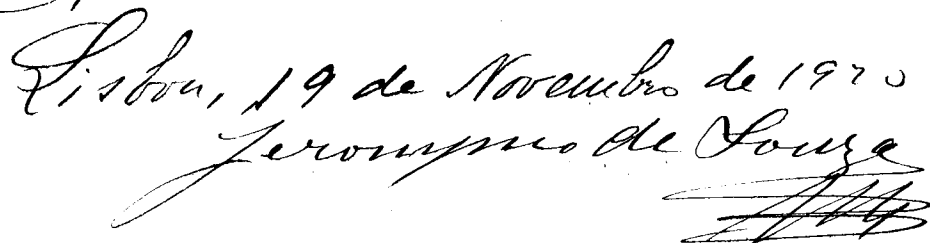 Lisboa, 19 de Novembro de 1920
Jeronymo de Souza